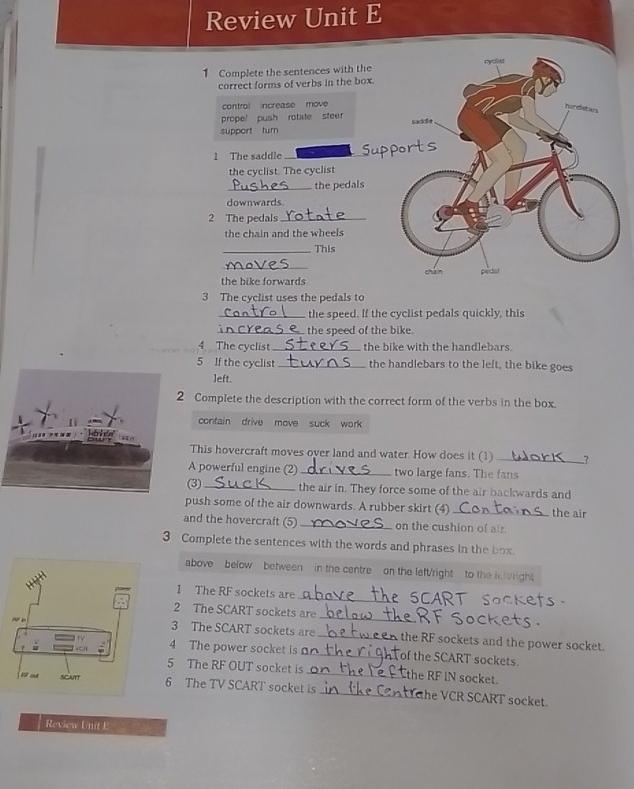 Review Unit E
1 Complete the sentences with the
correct forms of verbs in the box.
control increase move
propel push rotate steer
support turn
cyclist
handlebars
saddle
chain
pedal
1 The saddle Supports
the cyclist. The cyclist
Pushes the pedals
downwards.
2 The pedals rotate
the chain and the wheels
This
moves
the bike forwards
3 The cyclist uses the pedals to
control the speed. If the cyclist pedals quickly, this
increase the speed of the bike.
4 The cyclist steers the bike with the handlebars.
5 If the cyclist turns the handlebars to the left, the bike goes
left.
2 Complete the description with the correct form of the verbs in the box.
contain drive move suck work
HOVER
CRAFT
This hovercraft moves over land and water. How does it (1) work ?
A powerful engine (2) drives two large fans. The fans
(3) Suck the air in. They force some of the air backwards and
push some of the air downwards. A rubber skirt (4) Contains the air
and the hovercraft (5) moves on the cushion of air.
3 Complete the sentences with the words and phrases in the box.
above below between in the centre on the left/right to the left/right
power
RF in
TV
VCR
RF out
SCART
1 The RF sockets are above the SCART sockets.
2 The SCART sockets are below the RF sockets.
3 The SCART sockets are between the RF sockets and the power socket.
4 The power socket is on the right of the SCART sockets.
5 The RF OUT socket is on the left the RF IN socket.
6 The TV SCART socket is in the Centre he VCR SCART socket.
Review Unit E